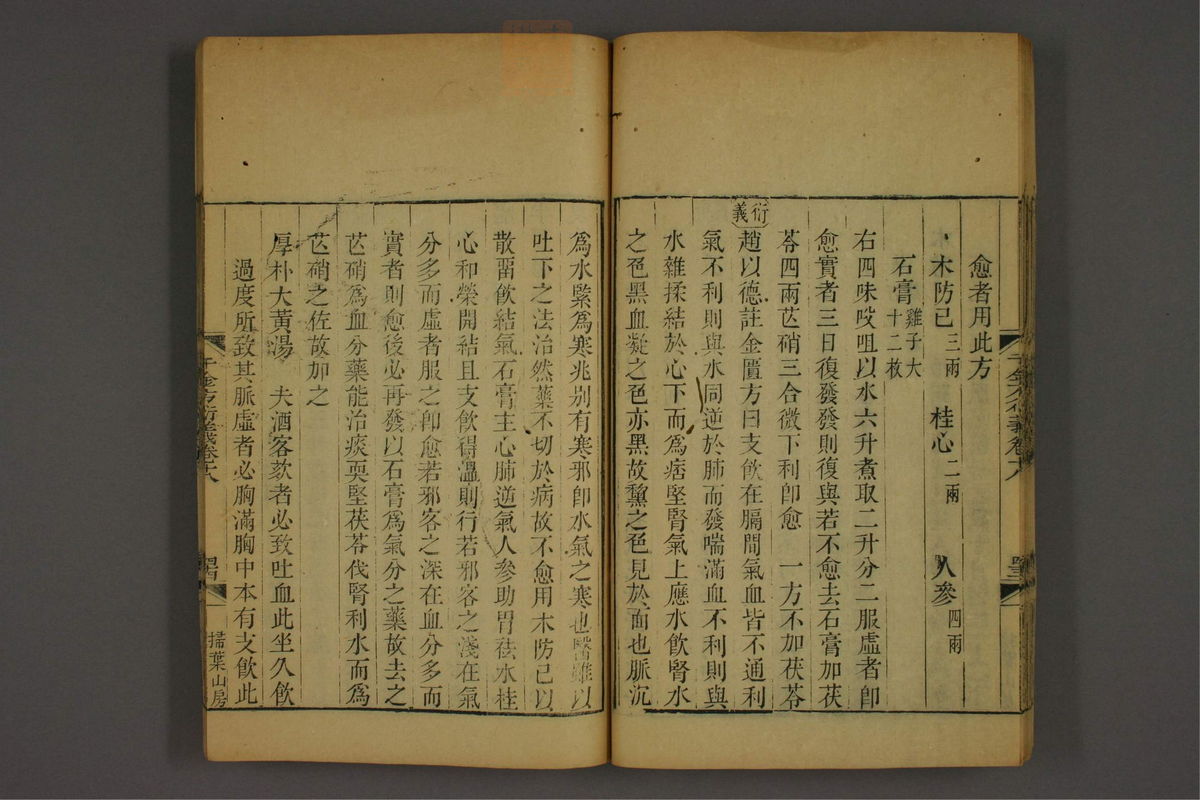 愈者用此方
木防己三兩 桂心二兩 人參四兩
石膏雞子大十二枚
右四味㕮咀以水六升煮取二升分二服虛者卽
愈實者三日復發發則復與若不愈去石膏加茯
苓四兩芒硝三合微下利卽愈 一方不加茯苓
衍義
趙以德註金匱方曰支飮在膈間氣血皆不通利
氣不利則與水同逆於肺而發喘滿血不利則與
水雜揉結於心下而爲痞堅腎氣上應水飮腎水
之色黑血凝之色亦黑故黧之色見於面也脈沉
爲水緊爲寒兆别有寒邪卽水氣之寒也醫雖以
吐下之法治然藥不切於病故不愈用木防己以
散畱飮結氣石膏主心肺逆氣人參助胃祛水桂
心和榮開結且支飮得溫則行若邪客之淺在氣
分多而虛者服之卽愈若邪客之深在血分多而
實者則愈後必再發以石膏爲氣分之藥故去之
芒硝爲血分藥能治痰耎堅茯苓伐腎利水而爲
芒硝之佐故加之
厚朴大黃湯 夫酒客欬者必致吐血此坐久飮
過度所致其脈虛者必胸滿胸中本有支飮此
千金方衍義卷十八
掃葉山房